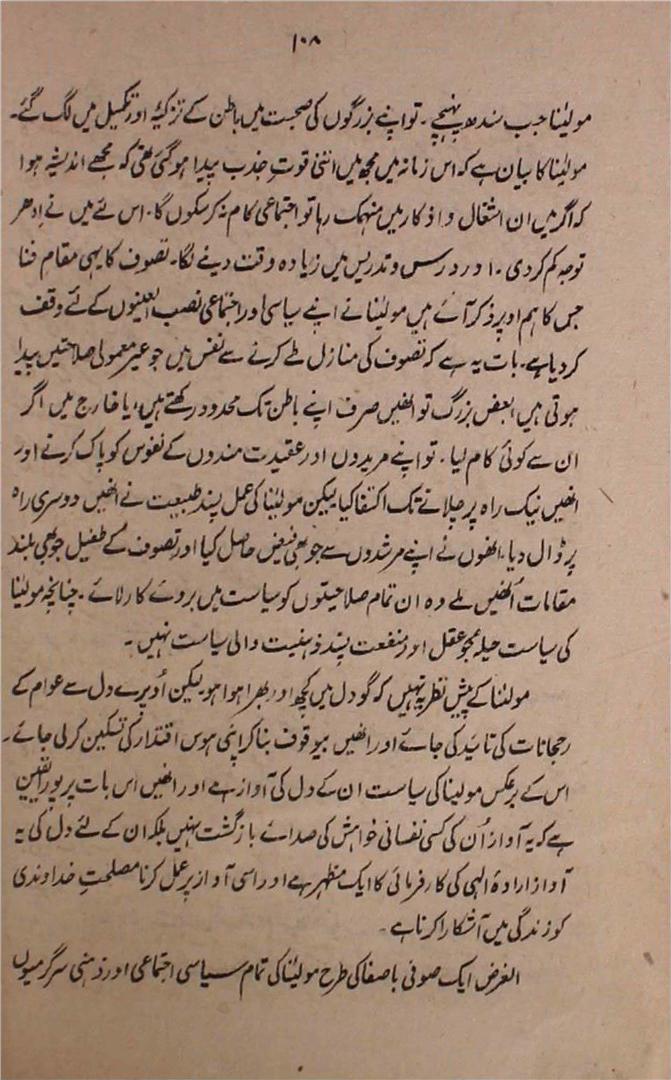 ۱۰۸
مولینٰا جب سندھ پہنچے ۔ تو اپنے بزرگوں کی صحبت میں باطن کے تزکیۂ اور تکمیل میں لگ گئے۔
مولینٰا کا بیان ہے کہ اس زمانہ میں مجھ میں اتنی قوتِ جذب پیدا ہو گئی تھی کہ مجھے اندیشہ ہوا
کہ اگر میں ان اشغال و اذکار میں منہمک رہا تو اجتماعی کام نہ کر سکوں گا۔ اس لئے میں نے اِدھر
توجہ کم کر دی ۔ اور درس و تدریس میں زیادہ وقت دینے لگا۔ تصوف کا یہی مقامِ فنا
جس کا ہم اوپر ذکر آئے ہیں مولینٰا نے اپنے سیاسی اور اجتماعی نصب العینوں کے لئے وقف
کر دیا ہے۔ بات یہ ہے کہ تصوف کی منازل طے کرنے سے نفس میں جو غیر معمولی صلاحتیں پیدا
ہوتی ہیں بعض بزرگ تو انھیں صرف اپنے باطن تک محدود رکھتے ہیں، یا خارج میں اگر
ان سے کوئی کام لیا ۔ تو اپنے مریدوں اور عقیدت مندوں کے نفوس کو پاک کرنے اور
انھیں نیک راہ پر چلانے تک اکتفا کیا لیکن مولینٰا کی عمل پسند طبیعت نے انھیں دوسری راہ
پر ڈال دیا۔ انھوں نے اپنے مرشدوں سے جو بھی فیض حاصل کیا اور تصوف کے طفیل جو بھی بلند
مقامات اُنھیں ملے وہ ان تمام صلاحیتوں کو سیاست میں بروئے کار لائے ۔ چنانچہ مولینٰا
کی سیاست حیلہ جو عقل اور منفعت پسند ذہنیت والی سیاست نہیں ۔
مولینٰا کے پیشِ نظر یہ نہیں کہ گو دل میں کچھ اور بھرا ہوا ہو لیکن اُوپرے دل سے عوام کے
رجحانات کی تائید کی جائے اور انھیں بیوقوف بنا کر اپنی ہوس اقتدار کی تسکین کر لی جائے۔
اس کے برعکس مولینا کی سیاست ان کے دل کی آواز ہے اور انھیں اس بات پر پورا یقین
ہے کہ یہ آواز اُن کی کسی نفسانی خواہش کی صدائے بازگشت نہیں بلکہ ان کے لئے دل کی یہ
آواز ارادۂ الٰہی کی کارفرمائی کا ایک مظہر ہے اور اسی آواز پر عمل کرنا مصلحتِ خداوندی
کو زندگی میں آشکارا کرنا ہے ۔
الغرض ایک صوفی باصفا کی طرح مولینٰا کی تمام سیاسی اجتماعی اور ذہنی سرگرمیوں